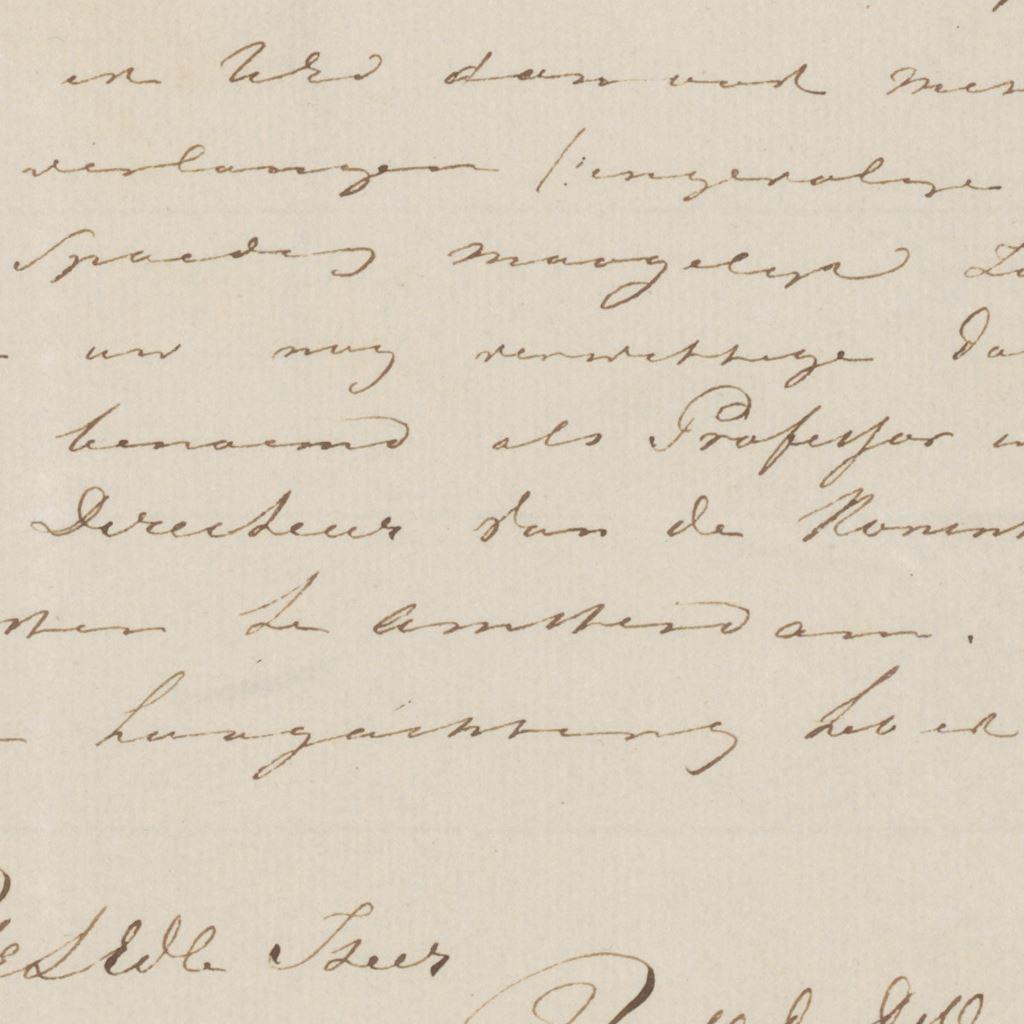 ik UEd dan ook men
verlangen /: ingevolge
Spoedig moogelijk Zu
uw nog verwittige da
benoemd als Professor
Directeur van de Konink
sten te Amsterdam.
hoogachting heb ik
Edle Heer